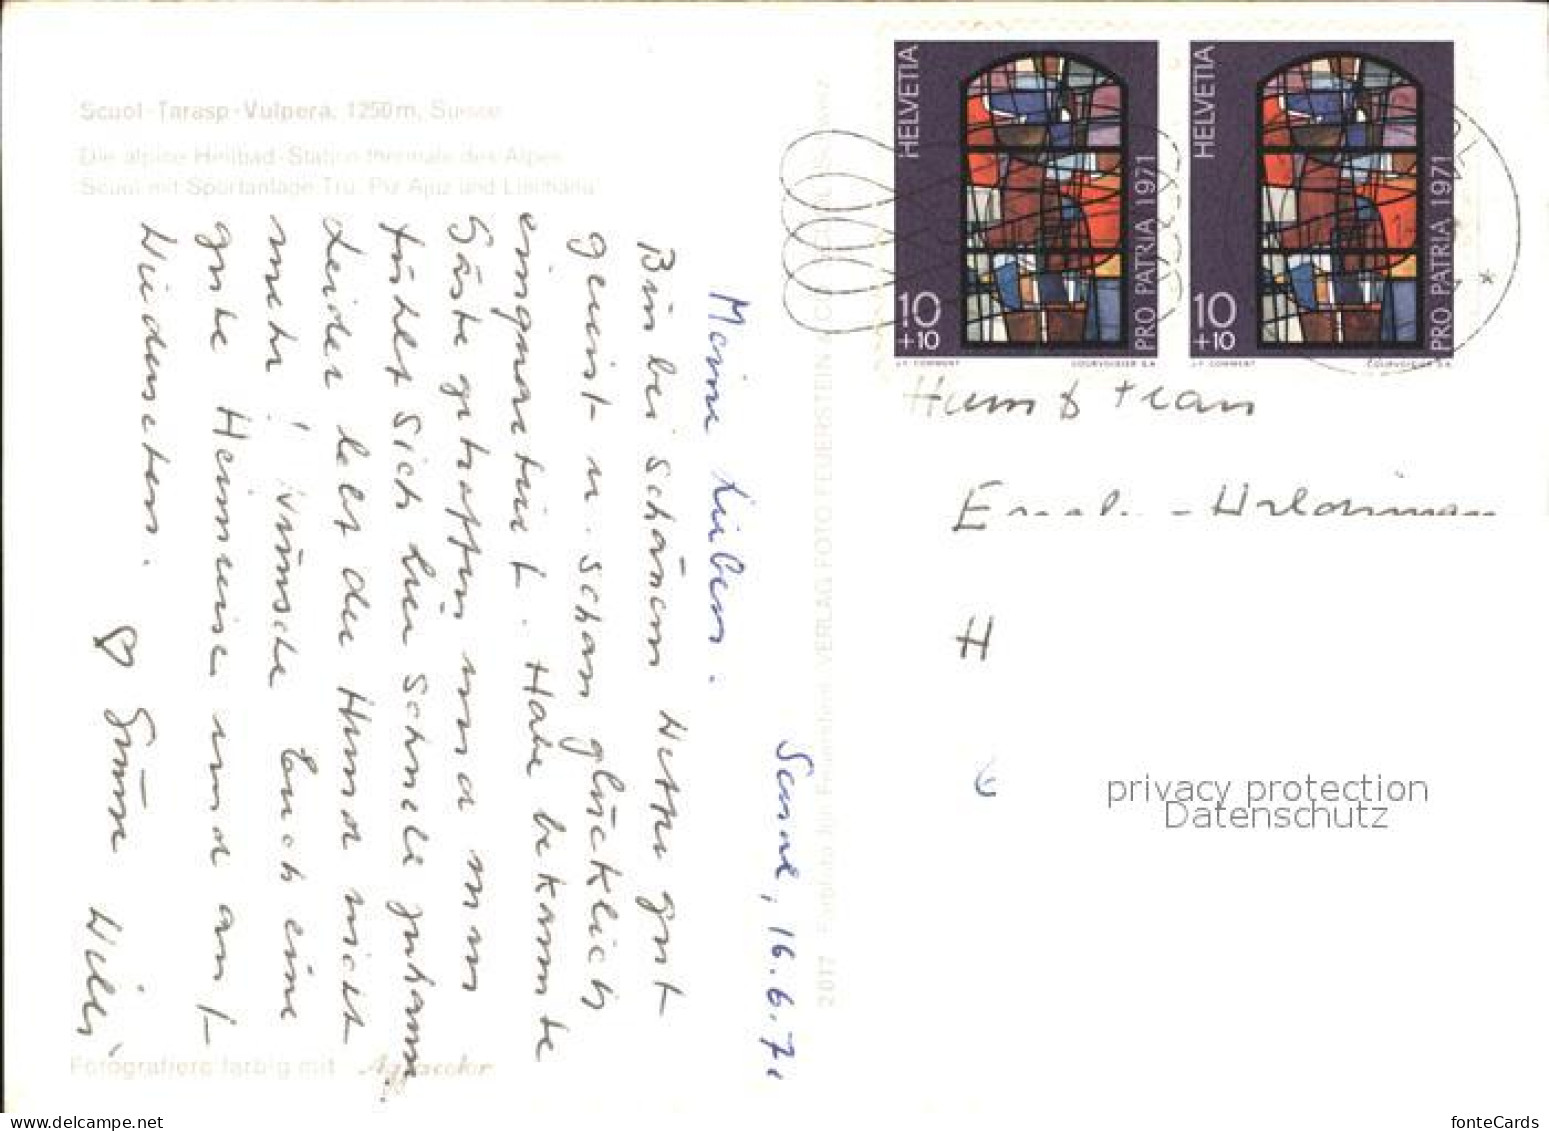 Scuol-Tarasp-Vulpera, 1250 m, Suisse
Die alpine Heilbad-Station thermale des Alpes
Scuol mit Sportanlage Tru, Piz Ajüz und Lischana
16.6.71
Meine Lieben.
Bin bei schönem Wetter gut
gereist u. schon glücklich
einquartiert. Habe bekannte
Gäste getroffen und man
fühlt sich hier schnell zuhause.
Leider lebt der Hund nicht
mehr! Wünsche Euch eine
gute Heimreise und auf
Wiedersehen.
♡ Grüsse Willi
Fotografiere farbig mit Agfacolor
2017 VERLAG FOTO FEUERSTEIN
HELVETIA
PRO PATRIA 1971
10
+10
J-F. COMMENT
COURVOISIER S.A.
HELVETIA
PRO PATRIA 1971
10
+10
J-F. COMMENT
COURVOISIER S.A.
H
privacy protection
Datenschutz
www.delcampe.net
fonteCards